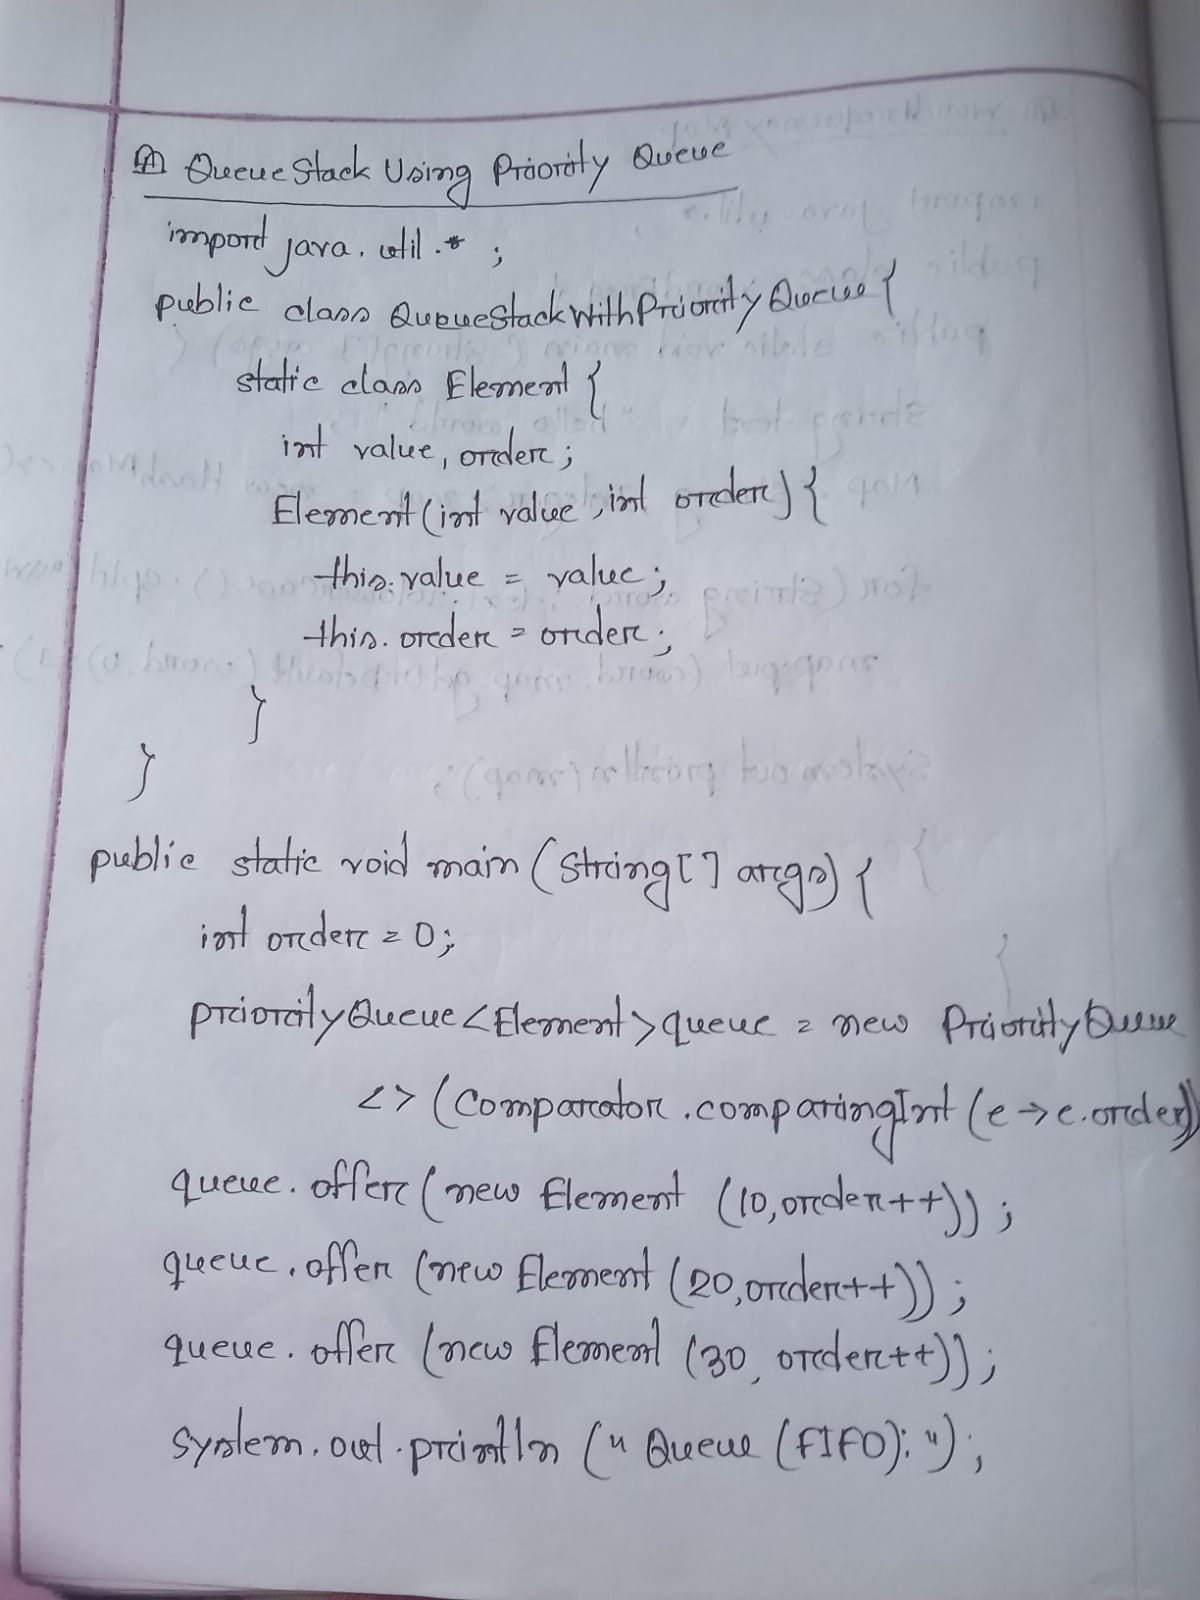 QueueStack Using Priority Queue
import java.util.*;
public class QueueStackWithPriorityQueue{
static class Element {
int value, order;
Element(int value, int order) {
this.value = value;
this.order = order;
}
}
public static void main (String[] args) {
int order = 0;
PriorityQueue<Element>queue = new PriorityQueue
<> (Comparator.comparingInt (e->e.order))
queue.offer (new Element (10, order++));
queue.offer (new Element (20, order++));
queue.offer (new Element (30, order++));
System.out.println (" Queue (FIFO): ");